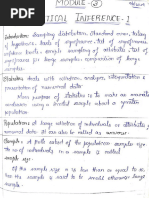 MODULE - 3
STATISTICAL INFERENCE-1
Introduction: Sampling distribution, standard error, testing
of hypothesis, levels of significance, test of significance
confidence limits, simple sampling of attributes, test of
significance for large samples, comparison of large
samples.
Statistics deals with collection, analyze, interpretation &
presentation of numerical data.
Main purpose of statistics is to make an accurate
Population: A large collection of individuals or attributes or
numerical data can also be called as universe.
Sample: A finite subset of the population is sample size.
The no of individuals in a sample is called
sample size.
If the sample size n is less than or equal to 30,
sample.